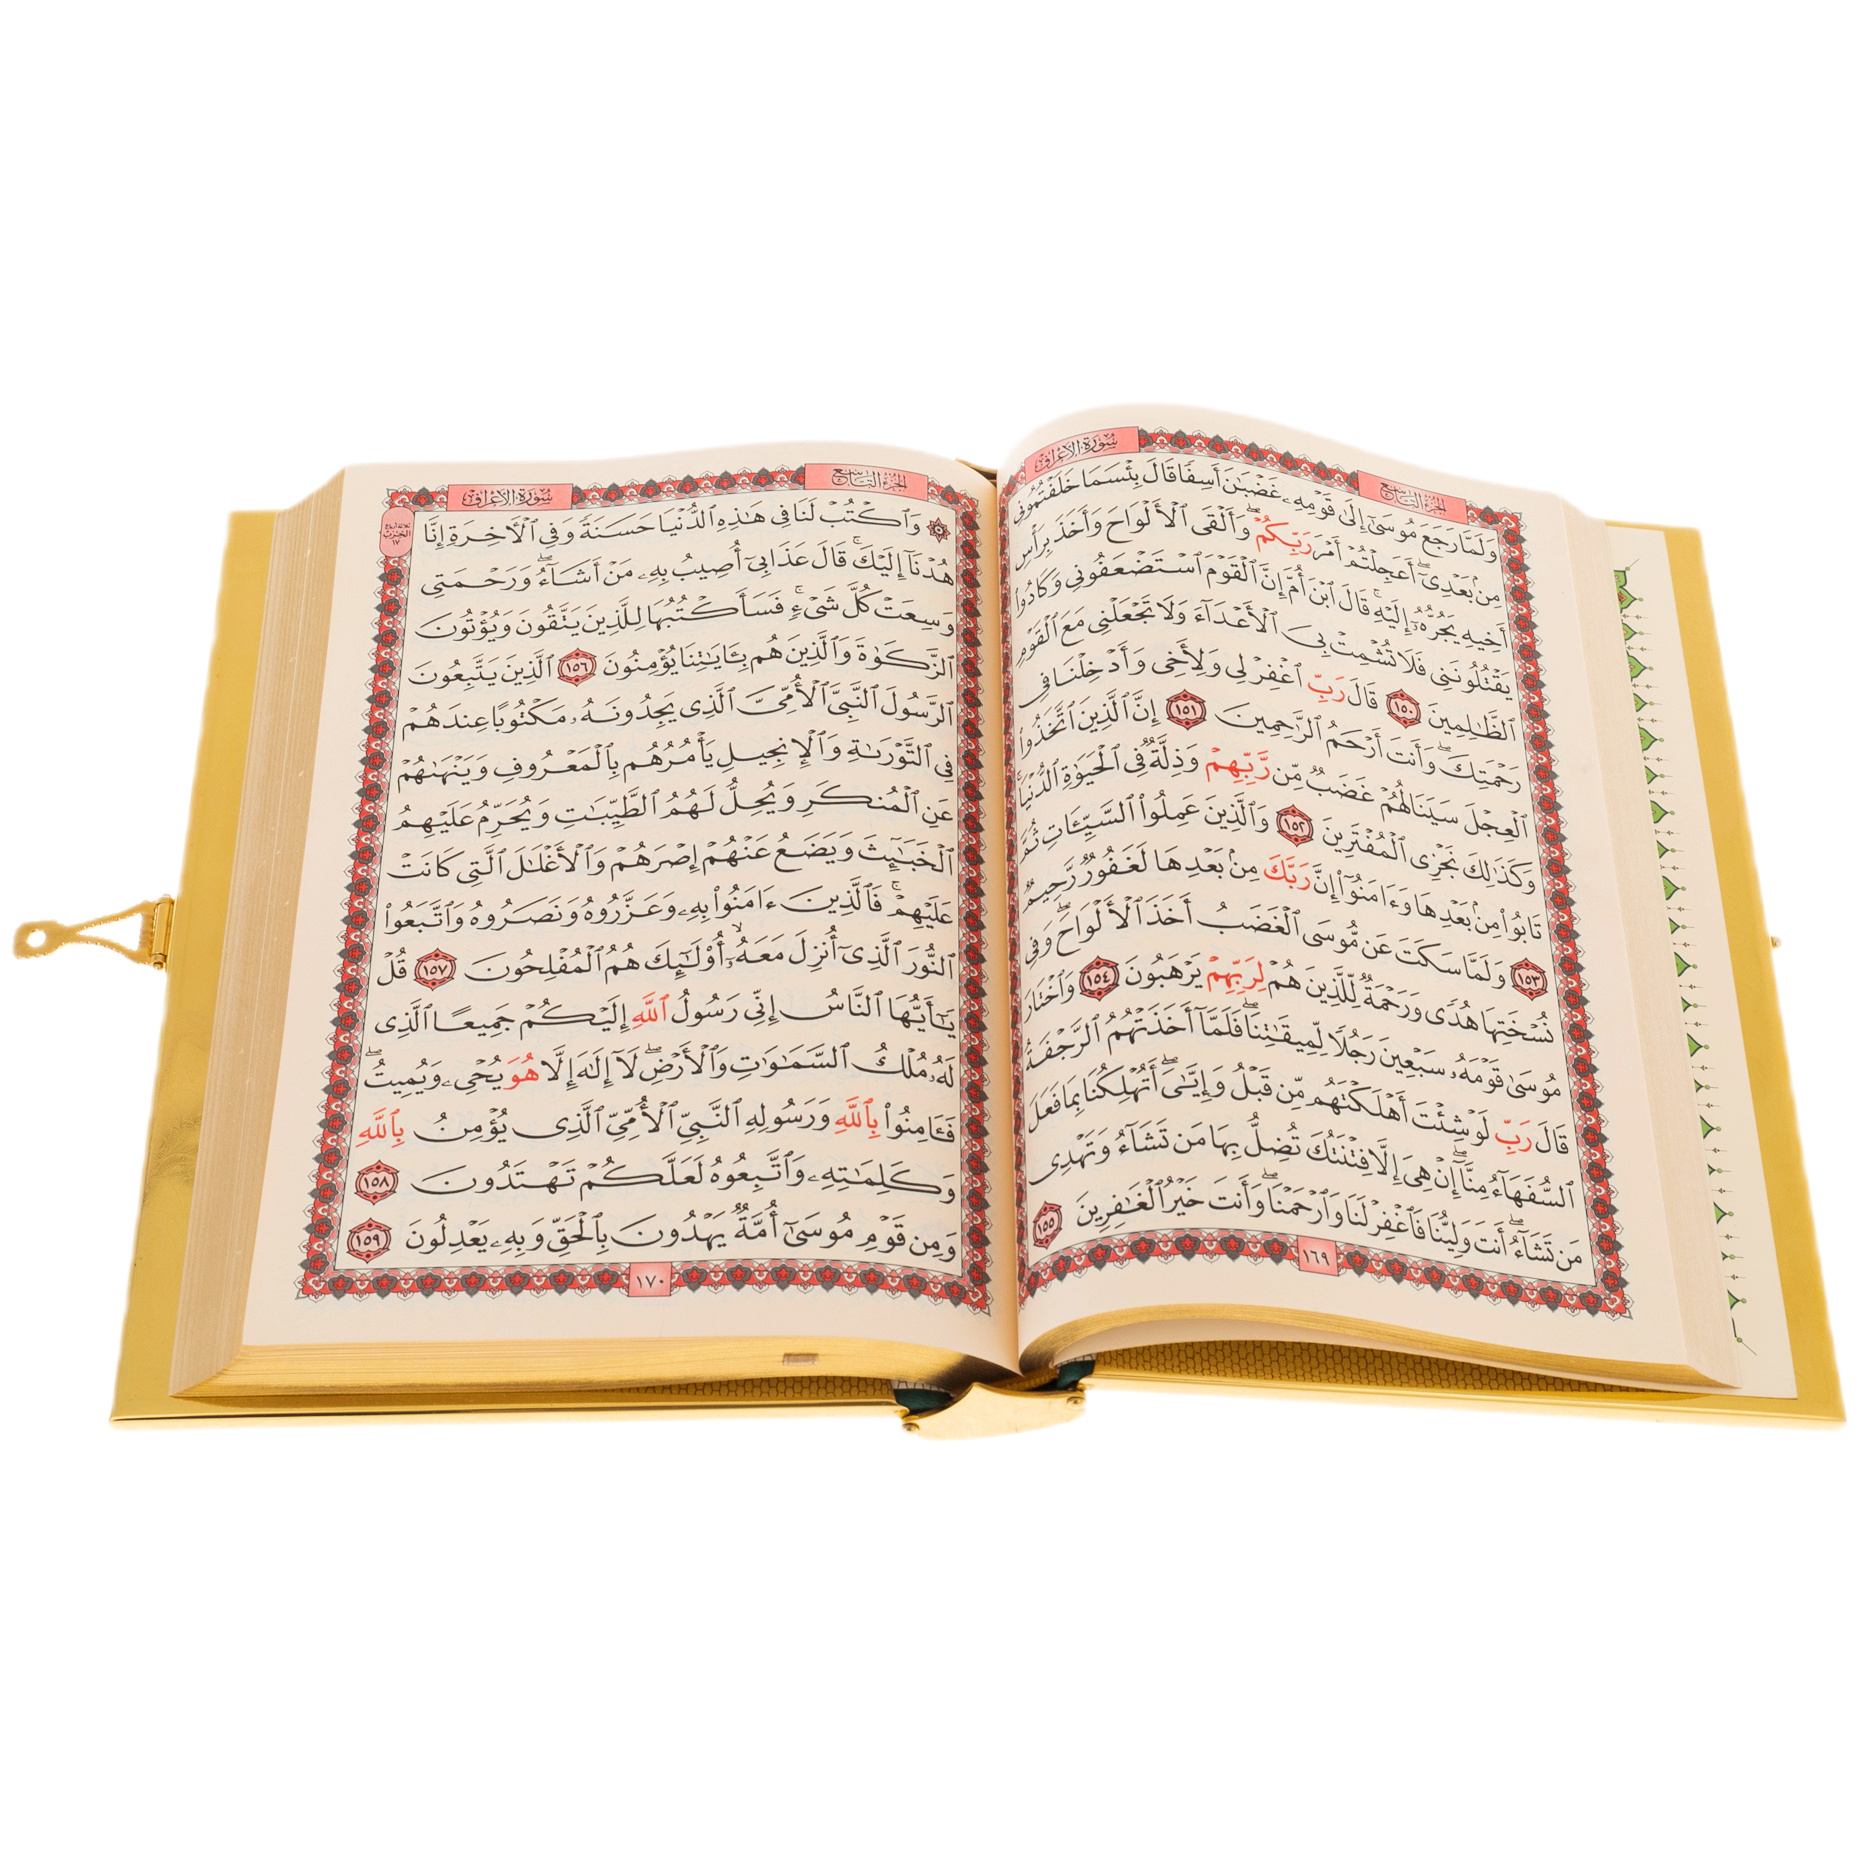 سُورَةُ الأَعْرَافِ
الجُزْءُ التَّاسِعُ
وَلَمَّا رَجَعَ مُوسَىٰٓ إِلَىٰ قَوْمِهِۦ غَضْبَٰنَ أَسِفًا قَالَ بِئْسَمَا خَلَفْتُمُونِى
مِنۢ بَعْدِىٓ ۖ أَعَجِلْتُمْ أَمْرَ رَبِّكُمْ ۖ وَأَلْقَى ٱلْأَلْوَاحَ وَأَخَذَ بِرَأْسِ
أَخِيهِ يَجُرُّهُۥٓ إِلَيْهِ ۚ قَالَ ٱبْنَ أُمَّ إِنَّ ٱلْقَوْمَ ٱسْتَضْعَفُونِى وَكَادُوا۟
يَقْتُلُونَنِى فَلَا تُشْمِتْ بِىَ ٱلْأَعْدَآءَ وَلَا تَجْعَلْنِى مَعَ ٱلْقَوْمِ
ٱلظَّٰلِمِينَ ١٥٠ قَالَ رَبِّ ٱغْفِرْ لِى وَلِأَخِى وَأَدْخِلْنَا فِى
رَحْمَتِكَ ۖ وَأَنتَ أَرْحَمُ ٱلرَّٰحِمِينَ ١٥١ إِنَّ ٱلَّذِينَ ٱتَّخَذُوا۟
ٱلْعِجْلَ سَيَنَالُهُمْ غَضَبٌ مِّن رَّبِّهِمْ وَذِلَّةٌ فِى ٱلْحَيَوٰةِ ٱلدُّنْيَا ۚ
وَكَذَٰلِكَ نَجْزِى ٱلْمُفْتَرِينَ ١٥٢ وَٱلَّذِينَ عَمِلُوا۟ ٱلسَّيِّـَٔاتِ ثُمَّ
تَابُوا۟ مِنۢ بَعْدِهَا وَءَامَنُوٓا۟ إِنَّ رَبَّكَ مِنۢ بَعْدِهَا لَغَفُورٌ رَّحِيمٌ
١٥٣ وَلَمَّا سَكَتَ عَن مُّوسَى ٱلْغَضَبُ أَخَذَ ٱلْأَلْوَاحَ ۖ وَفِى
نُسْخَتِهَا هُدًى وَرَحْمَةٌ لِّلَّذِينَ هُمْ لِرَبِّهِمْ يَرْهَبُونَ ١٥٤ وَٱخْتَارَ
مُوسَىٰ قَوْمَهُۥ سَبْعِينَ رَجُلًا لِّمِيقَٰتِنَا ۖ فَلَمَّآ أَخَذَتْهُمُ ٱلرَّجْفَةُ
قَالَ رَبِّ لَوْ شِئْتَ أَهْلَكْتَهُم مِّن قَبْلُ وَإِيَّٰىَ ۖ أَتُهْلِكُنَا بِمَا فَعَلَ
ٱلسُّفَهَآءُ مِنَّآ ۖ إِنْ هِىَ إِلَّا فِتْنَتُكَ تُضِلُّ بِهَا مَن تَشَآءُ وَتَهْدِى
مَن تَشَآءُ ۖ أَنتَ وَلِيُّنَا فَٱغْفِرْ لَنَا وَٱرْحَمْنَا ۖ وَأَنتَ خَيْرُ ٱلْغَٰفِرِينَ ١٥٥
١٦٩
الجُزْءُ التَّاسِعُ
سُورَةُ الأَعْرَافِ
ثَلَاثَةُ أَرْبَاعِ
الحِزْبِ
١٧
۞ وَٱكْتُبْ لَنَا فِى هَٰذِهِ ٱلدُّنْيَا حَسَنَةً وَفِى ٱلْءَاخِرَةِ إِنَّا
هُدْنَآ إِلَيْكَ ۚ قَالَ عَذَابِىٓ أُصِيبُ بِهِۦ مَنْ أَشَآءُ ۖ وَرَحْمَتِى
وَسِعَتْ كُلَّ شَىْءٍ ۚ فَسَأَكْتُبُهَا لِلَّذِينَ يَتَّقُونَ وَيُؤْتُونَ
ٱلزَّكَوٰةَ وَٱلَّذِينَ هُم بِـَٔايَٰتِنَا يُؤْمِنُونَ ١٥٦ ٱلَّذِينَ يَتَّبِعُونَ
ٱلرَّسُولَ ٱلنَّبِىَّ ٱلْأُمِّىَّ ٱلَّذِى يَجِدُونَهُۥ مَكْتُوبًا عِندَهُمْ
فِى ٱلتَّوْرَىٰةِ وَٱلْإِنجِيلِ يَأْمُرُهُم بِٱلْمَعْرُوفِ وَيَنْهَىٰهُمْ
عَنِ ٱلْمُنكَرِ وَيُحِلُّ لَهُمُ ٱلطَّيِّبَٰتِ وَيُحَرِّمُ عَلَيْهِمُ
ٱلْخَبَٰٓئِثَ وَيَضَعُ عَنْهُمْ إِصْرَهُمْ وَٱلْأَغْلَٰلَ ٱلَّتِى كَانَتْ
عَلَيْهِمْ ۚ فَٱلَّذِينَ ءَامَنُوا۟ بِهِۦ وَعَزَّرُوهُ وَنَصَرُوهُ وَٱتَّبَعُوا۟
ٱلنُّورَ ٱلَّذِىٓ أُنزِلَ مَعَهُۥٓ ۙ أُو۟لَٰٓئِكَ هُمُ ٱلْمُفْلِحُونَ ١٥٧ قُلْ
يَٰٓأَيُّهَا ٱلنَّاسُ إِنِّى رَسُولُ ٱللَّهِ إِلَيْكُمْ جَمِيعًا ٱلَّذِى
لَهُۥ مُلْكُ ٱلسَّمَٰوَٰتِ وَٱلْأَرْضِ ۖ لَآ إِلَٰهَ إِلَّا هُوَ يُحْىِۦ وَيُمِيتُ ۖ
فَـَٔامِنُوا۟ بِٱللَّهِ وَرَسُولِهِ ٱلنَّبِىِّ ٱلْأُمِّىِّ ٱلَّذِى يُؤْمِنُ بِٱللَّهِ
وَكَلِمَٰتِهِۦ وَٱتَّبِعُوهُ لَعَلَّكُمْ تَهْتَدُونَ ١٥٨
وَمِن قَوْمِ مُوسَىٰٓ أُمَّةٌ يَهْدُونَ بِٱلْحَقِّ وَبِهِۦ يَعْدِلُونَ ١٥٩
١٧٠